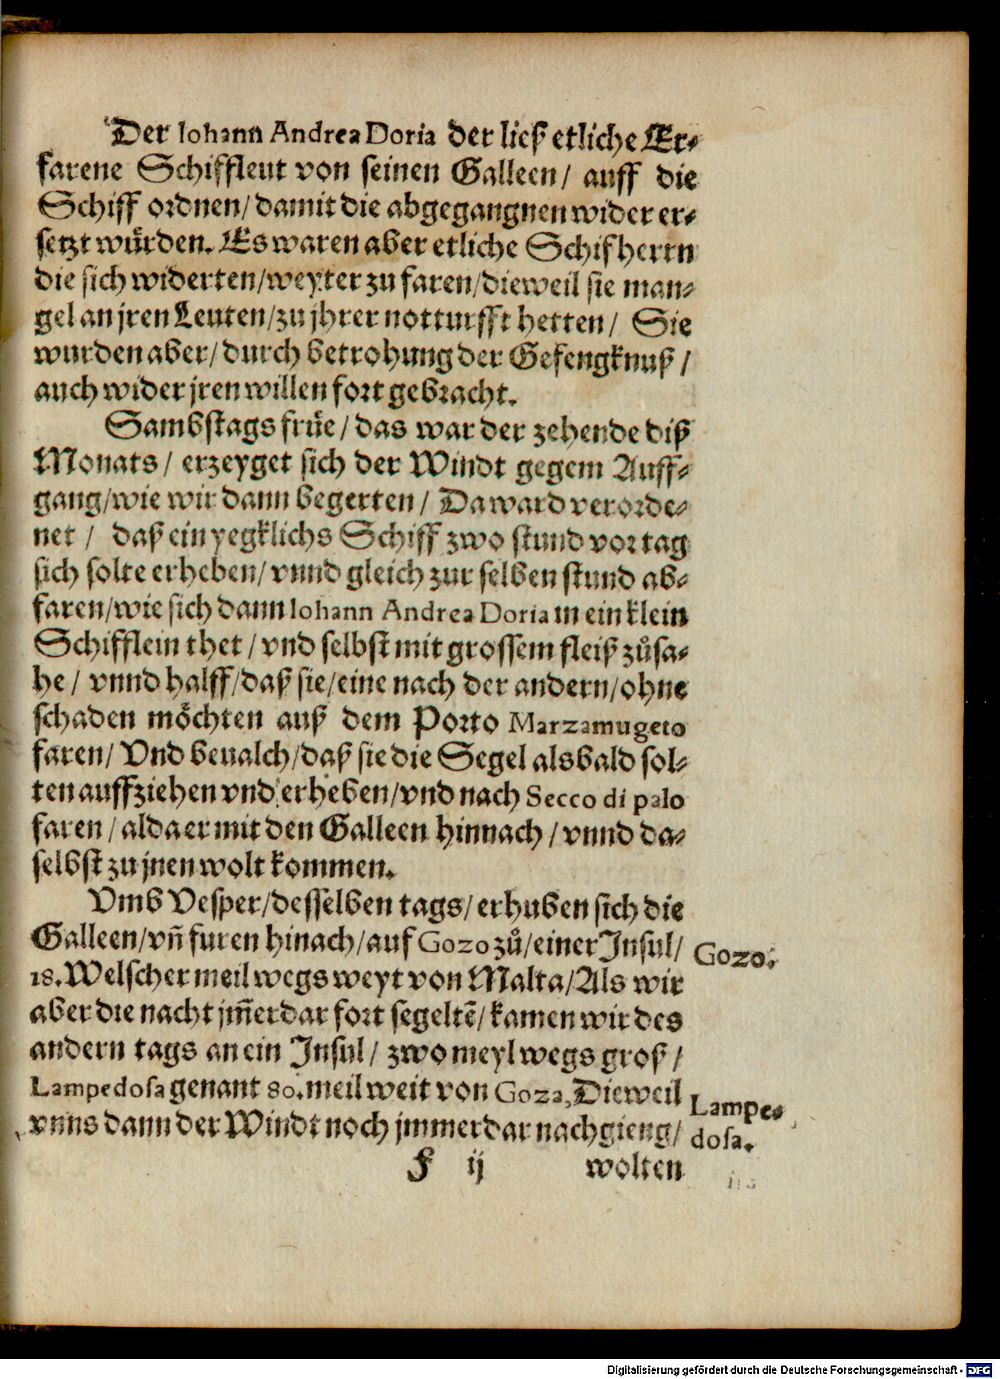 Der Iohann Andrea Doria der ließ etliche Er-
farene Schiffleut von seinen Galleen/ auff die
Schiff ordnen/ damit die abgegangnen wider er-
setzt würden. Es waren aber etliche Schifherrn
die sich widerten/ weyter zu faren/ dieweil sie man-
gel an jren Leuten/ zu jhrer notturfft hetten/ Sie
wurden aber/ durch betrohung der Gefengknuß/
auch wider jren willen fort gebracht.
Sambstags früe/ das war der zehende diß
Monats/ erzeyget sich der Windt gegem Auff-
gang/ wie wir dann begerten/ Da ward verorde-
net/ daß ein yegklichs Schiff zwo stund vor tag
sich solte erheben/ vnnd gleich zur selben stund ab-
faren/ wie sich dann Iohann Andrea Doria in ein klein
Schifflein thet/ vnd selbst mit grossem fleiß zůsa-
he/ vnnd halff/ daß sie/ eine nach der andern/ ohne
schaden möchten auß dem Porto Marzamugeto
faren/ Vnd beualch/ daß sie die Segel alsbald sol-
ten auffziehen vnd erheben/ vnd nach Secco di palo
faren/ alda er mit den Galleen hinnach/ vnnd da-
selbst zu jnen wolt kommen.
Vmb Vesper/ desselben tags/ erhuben sich die
Galleen/ vñ furen hinach/ auf Gozo zů/ einer Insul/ Gozo.
18. Welscher meil wegs weyt von Malta/ Als wir
aber die nacht jm̃erdar fort segeltẽ/ kamen wir des
andern tags an ein Insul/ zwo meyl wegs groß/
Lampedosa genant 80. meil weit von Goza, Dieweil Lampe-
vnns dann der Windt noch jmmerdar nachgieng/ dosa.
F ij wolten
Digitalisierung gefördert durch die Deutsche Forschungsgemeinschaft - DFG